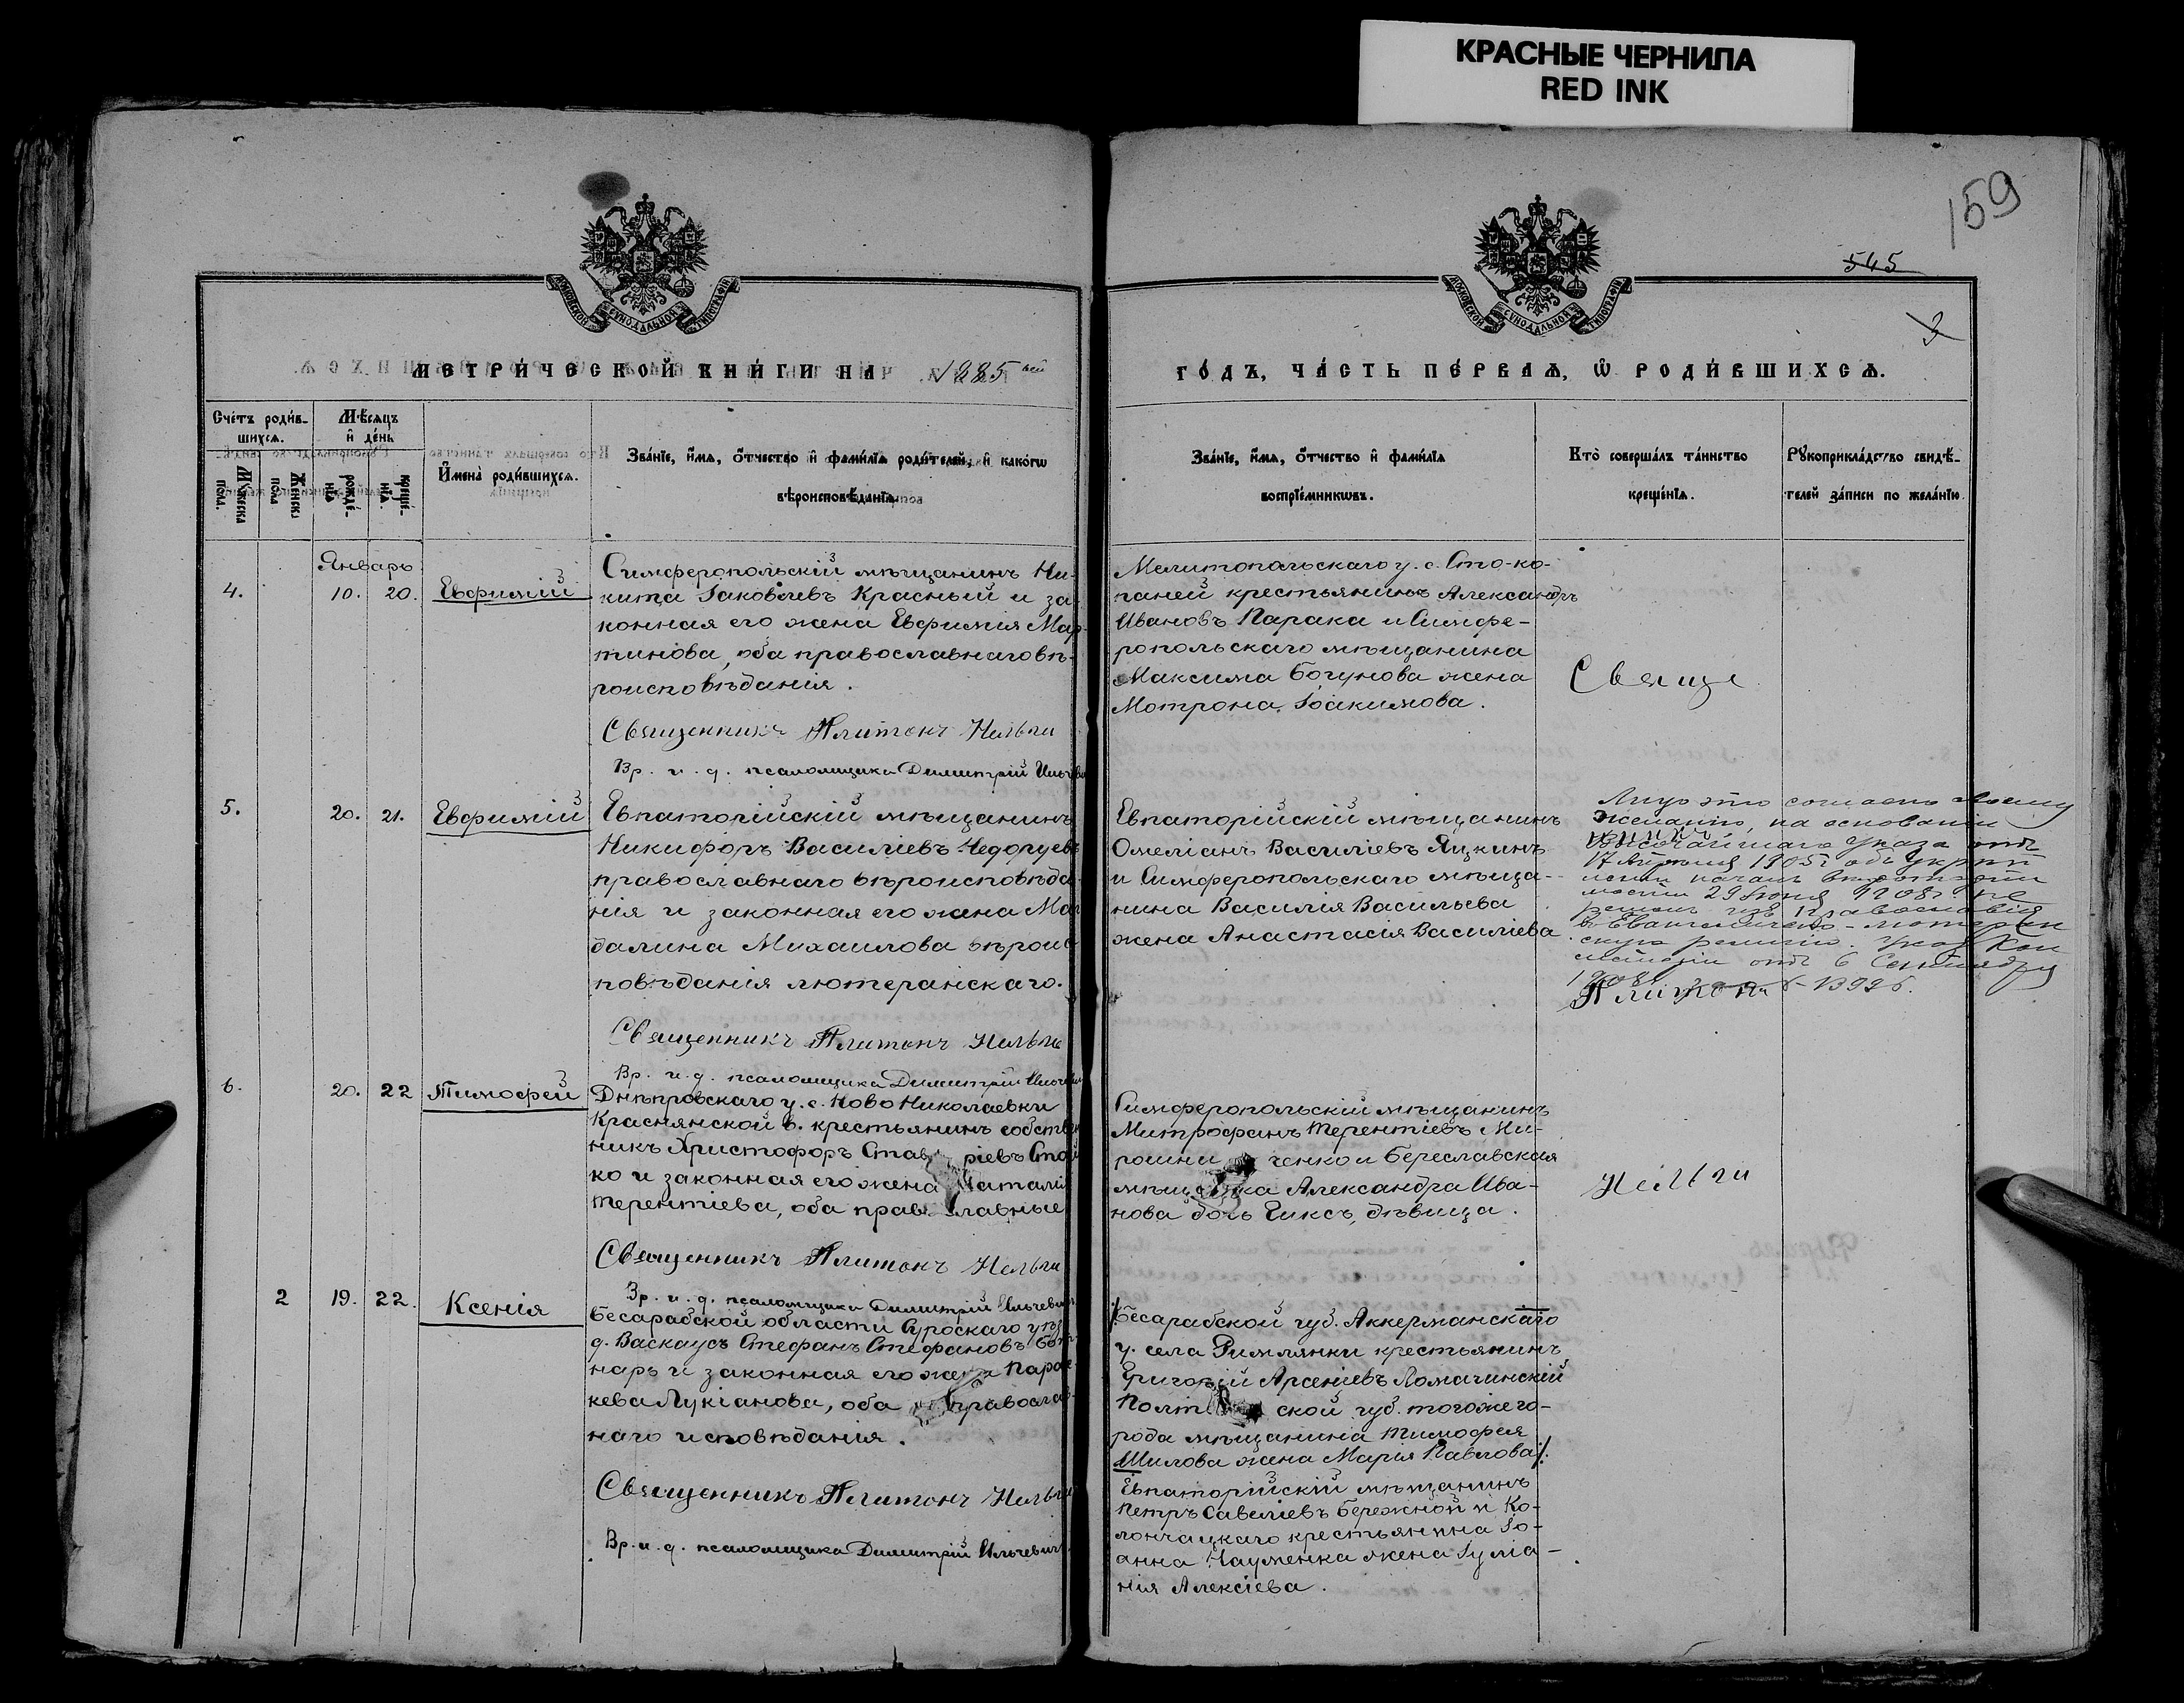 КРАСНЫЕ ЧЕРНИЛА
RED INK
159
545
3
МОСКОВСКОЙ СѴНОДАЛЬНОЙ ТИПОГРАФІИ
МОСКОВСКОЙ СѴНОДАЛЬНОЙ ТИПОГРАФІИ
МЕТРИ́ЧЕСКОЙ КНИ́ГИ НА 1885 ый
ГО́ДЪ, ЧА́СТЬ ПЕ́РВАѦ, Ѡ҆ РОДИ́ВШИХСѦ.
Счетъ роди́в-
шихсѧ.
Мѣсѧцъ
и҆ де́нь
Мꙋжеска
пола.
Женска
пола
рожде́-
нїѧ
креще́-
нїѧ.
И҆мена̀ роди́вшихсѧ.
Зва́нїе, и҆́мѧ, ѻ҆́тчество и҆ фами́лїѧ роди́телей, и҆ како́гѡ
вѣроисповѣ́данїѧ.
Зва́нїе, и҆́мѧ, ѻ҆́тчество и҆ фами́лїѧ
воспрїе́мникѡвъ.
Кто̀ соверша́лъ та́инство
креще́нїѧ.
Рꙋкоприкла́дство свидѣ́-
телей за́писи по жела́нїю.
Январь
4. 10. 20. Евфимій
Симферопольскій мѣщанинъ Ни-
кита Іаковлевъ Красный и за-
конная его жена Евфимія Мар-
тинова, оба православнаго вѣ-
роисповѣданія.
Священникъ Платонъ
Вр. и. д. псаломщика Димитрій Ильчевич
Мелитопольскаго у. с. Сто-ко-
паней крестьянинъ Александръ
Ивановъ Парака и Симфе-
ропольскаго мѣщанина
Максима Богунова жена
Мотрона Іоакимова.
Свяще
5. 20. 21. Евфимій
Евпаторійскій мѣщанинъ
Никифоръ Василіевъ
православнаго вѣроисповѣда-
нія и законная его жена Маг
далина Михаилова вѣроис
повѣданія лютеранскаго.
Священникъ Платонъ
Вр. и. д. псаломщика Димитрій
Евпаторійскій мѣщанинъ
Омеліанъ Василіевъ Яцкинъ
и Симферопольскаго мѣща-
нина Василія Васильева
жена Анастасія Василіева
Лицо это согласно своему
желанію, на основаніи
Высочайшаго Указа отъ
17 Апрѣля 1905 г. объ
29 Іюня 1908 г.
изъ Православія
въ Евангелическо-лютеран
скую религію. Указ Кон
систоріи отъ 6 Сентября
1908 г. 13925.
Платонъ
6. 20. 22 Тимофей
Днѣпровскаго у. с. Ново Николаевки
Краснянской в. крестьянинъ собствен
никъ Христофоръ ріевъ
ко и законная его жена
Терентіева, оба православные
Священникъ Платонъ
Вр. и. д. псаломщика Димитрій Ильчевич
Симферопольскій мѣщанинъ
Митрофанъ Терентіевъ Ми-
рошни ченко и Береславская
мѣщанка Александра Ива-
нова дочь Гиксъ, дѣвица.
2 19. 22. Ксенія
Бесарабской области
д. Стефанъ Стефановъ
нарь и законная его жена Парас
кева Лукіанова, оба православ-
наго исповѣданія.
Священникъ Платонъ
Вр. и. д. псаломщика Димитрій Ильчевич
Бесарабской губ. Аккерманскаго
у. села крестьянинъ
Григорій Арсеніевъ Ломачинскій
ской губ. тогоже го-
рода мѣщанина Тимофея
Шилова жена Марія Павлова
Евпаторійскій мѣщанинъ
Петръ Савеліевъ Бережной и Ко-
лончацкаго крестьянина Іо-
анна Науменка жена Іуліа-
нія Алексіева.